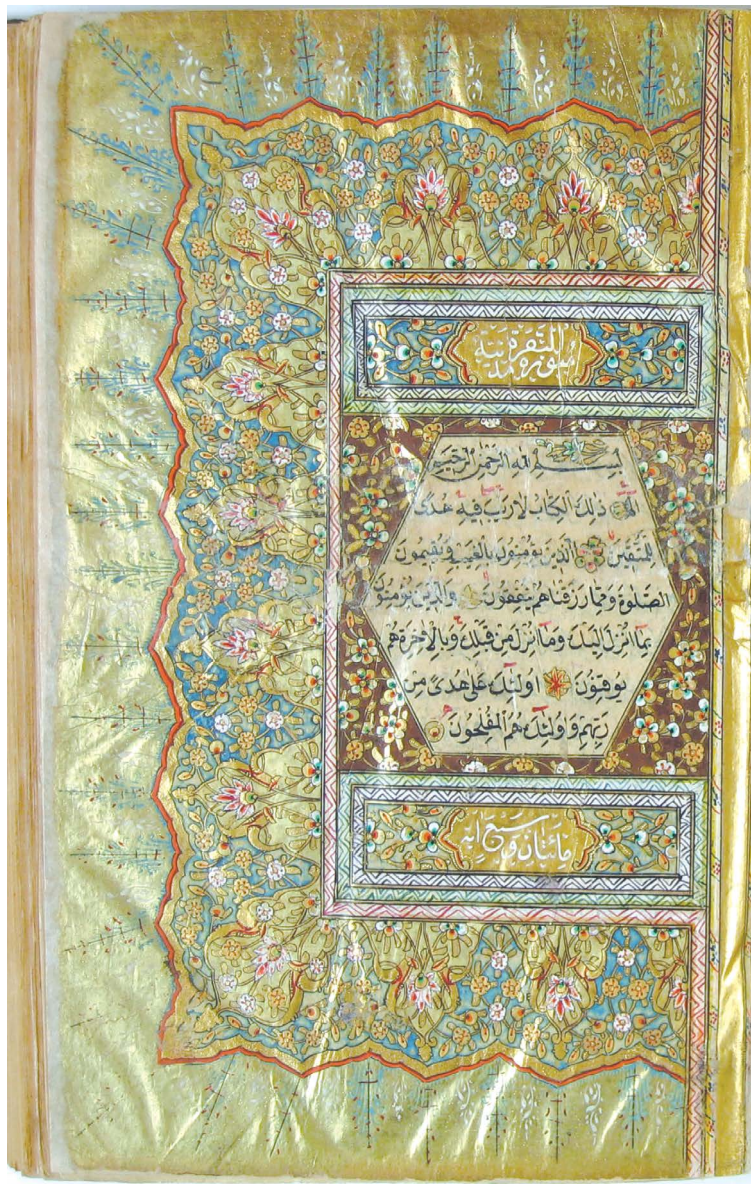 سورة البقرة مدنية
بسم الله الرحمن الرحيم
الم ذلك الكتاب لا ريب فيه هدى
للمتقين الذين يؤمنون بالغيب ويقيمون
الصلوة ومما رزقناهم ينفقون والذين يؤمنون
بما انزل اليك وما انزل من قبلك وبالاخرة هم
يوقنون اولئك على هدى من
ربهم واولئك هم المفلحون
مائتان وسبع اية